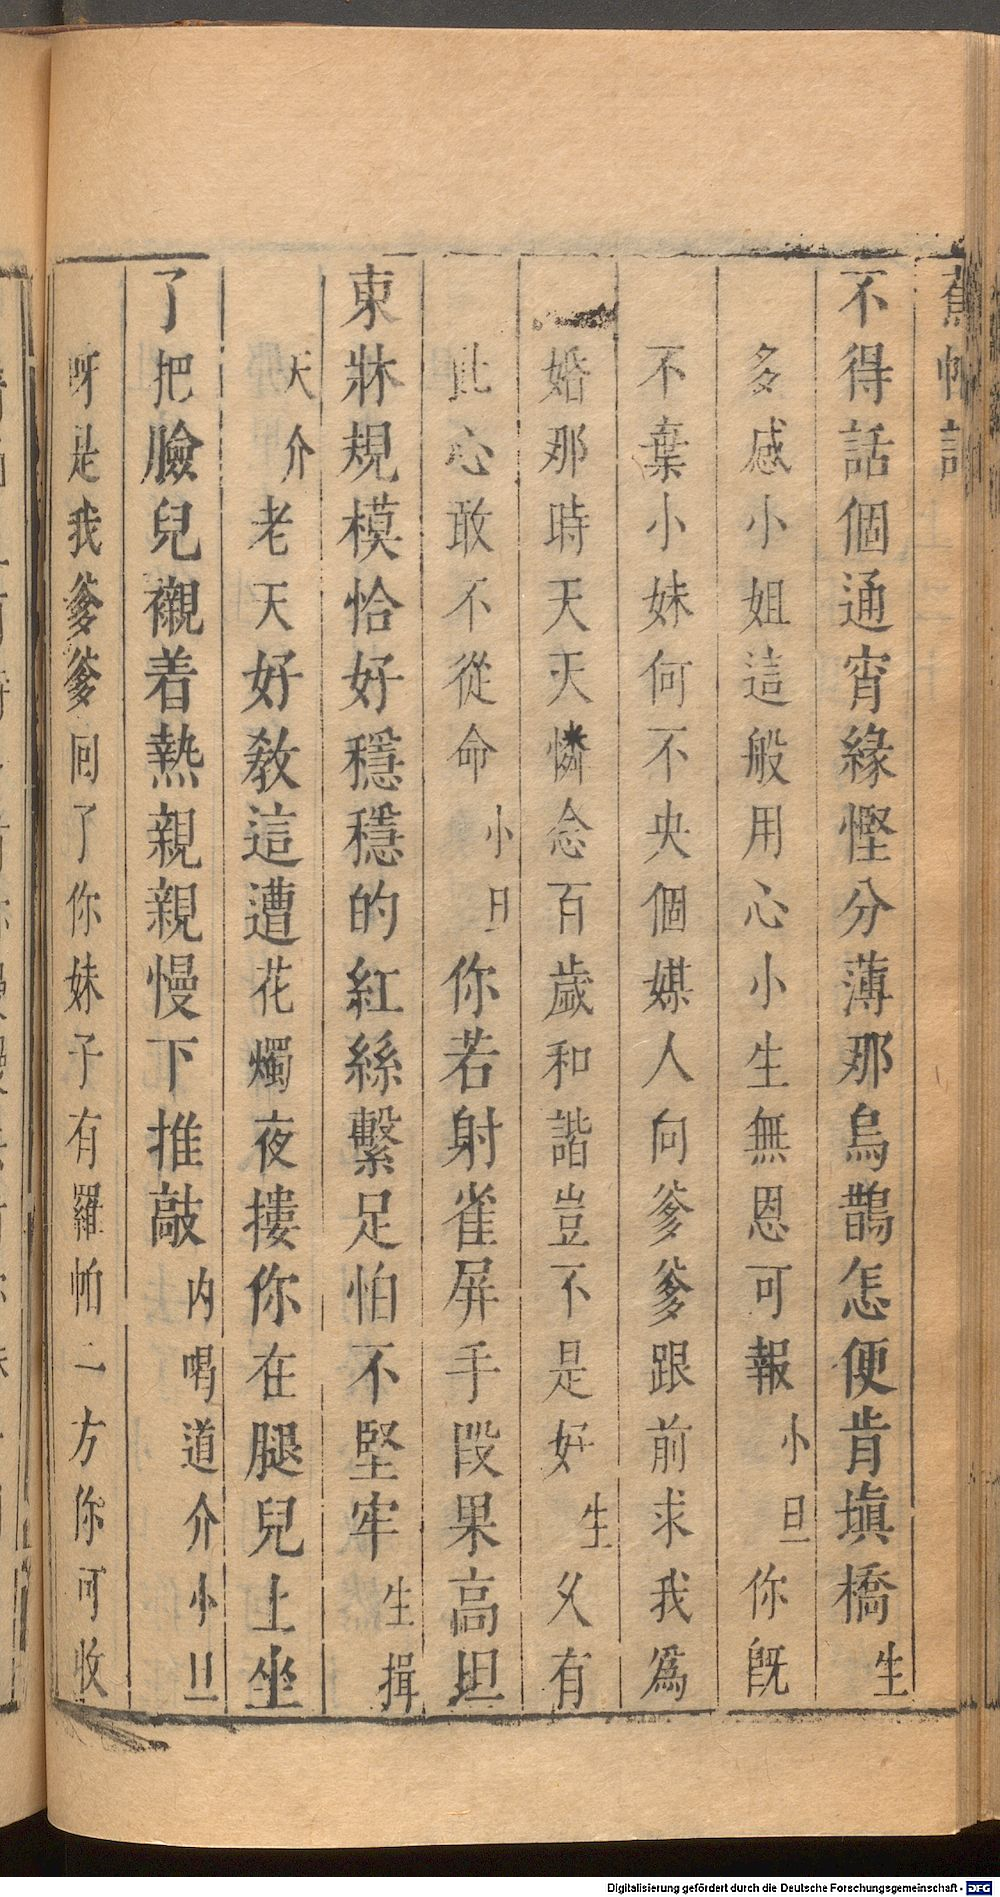 蕉帕記
不得話個通宵緣慳分薄那烏鵲怎便肯塡橋生
多感小姐這般用心小生無恩可報小旦你旣
不棄小妹何不央個媒人向爹爹跟前求我爲
婚那時天天憐念百歲和諧豈不是好生乆有
此心敢不從命小旦你若射雀屛手段果高坦
東牀規模恰好穩穩的紅絲繫足怕不堅牢生揖
天介老天好教這遭花燭夜摟你在腿兒上坐
了把臉兒襯着熱親親慢下推敲内喝道介小旦
呀是我爹爹囘了你妹子有羅帕二方你可收
Digitalisierung gefördert durch die Deutsche Forschungsgemeinschaft - DFG